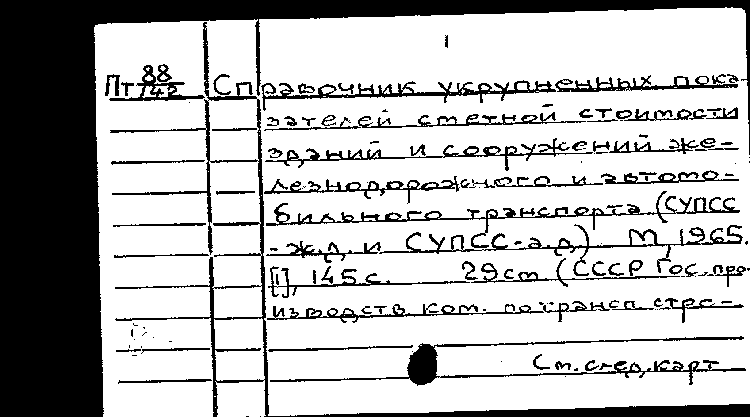 1
Пт 88/142 Справочник укрупненных пока-
зателей сметной стоимости
зданий и сооружений же-
лезнодорожного и автомо-
бильного транспорта (СУПСС
-ж.д. и СУПСС-а.д.) М, 1965.
[1], 145 с. 29 см (СССР Гос. про-
изводств. ком. по трансп. стро-
См. след. карт.